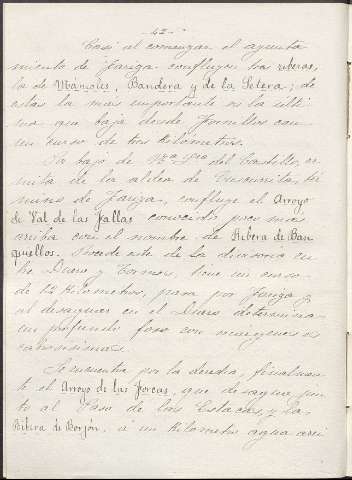 - 42 -
Casi al comenzar el ayunta
miento de Fariza confluyen tres riberas,
la de Mámoles, Bandera y de la Setera; de
estas la más importante es la últi
ma que baja desde Fornillos con
un curso de tres kilómetros.
Ya bajo de Nra Sra del Castillo, er
mita de la aldea de Cuscurrita, tér
mino de Fariza, confluye el Arroyo
de Val de las Fallas conocido por más
arriba con el nombre de Ribera de Ban
quellos. Procede este de la divisoria en
tre Duero y Tormes, tiene un curso
de 12 kilómetros, pasa por Fariza y
al desaguar en el Duero determina
un profundo foso con márgenes es
cabrosísimas.
Se encuentra por la derecha, finalmen
te el Arroyo de las Forcas, que desagua jun
to al Paso de las Estacas, y la
Ribera de Borjón, a un kilómetro agua arri